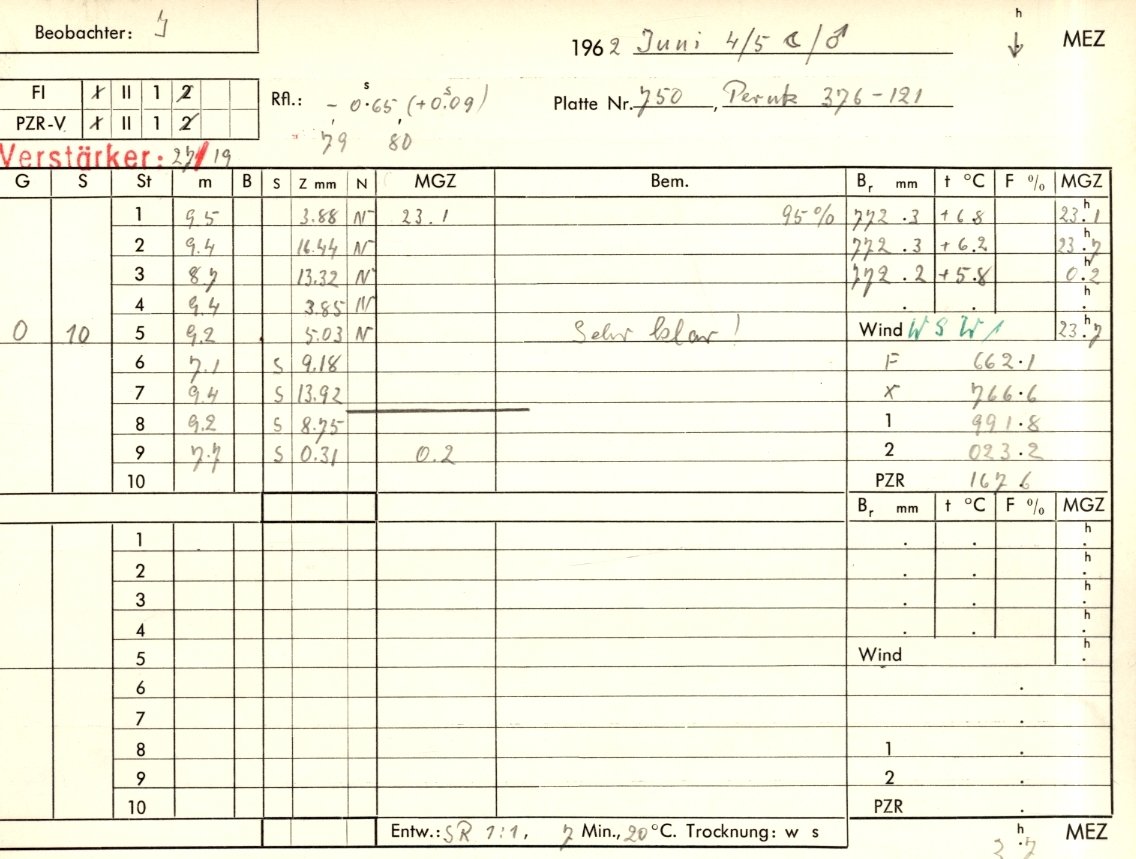 Beobachter: J
h
1962 Juni 4/5 ☾/♂ ↓ MEZ
FI I II 1 2
PZR-V I II 1 2
Rfl.: - 0.65 (+0.09)
s s
79 80
Platte Nr. 750, Perutz 376-121
Verstärker: 27/19
G S St m B S Z mm N MGZ Bem. Br mm t °C F % MGZ
1 9.5 3.88 N 23.1 95% 772.3 +6.8 23.1 h
2 9.4 16.44 N 772.3 +6.2 23.7 h
3 8.7 13.32 N 772.2 +5.8 0.2 h
4 9.4 3.85 N . . h
0 10 5 9.2 5.03 N Sehr klar! Wind WSW 1 23.7 h
6 7.1 S 9.18 F 662.1
7 9.4 S 13.92 X 766.6
8 9.2 S 8.75 1 991.8
9 7.7 S 0.31 0.2 2 023.2
10 PZR 167 6
Br mm t °C F % MGZ
1 . . h
2 . . h
3 . . h
4 . . h
5 Wind h
6 .
7 .
8 1 .
9 2 .
10 PZR .
Entw.: SR 1:1, 7 Min., 20°C. Trocknung: w s
h MEZ